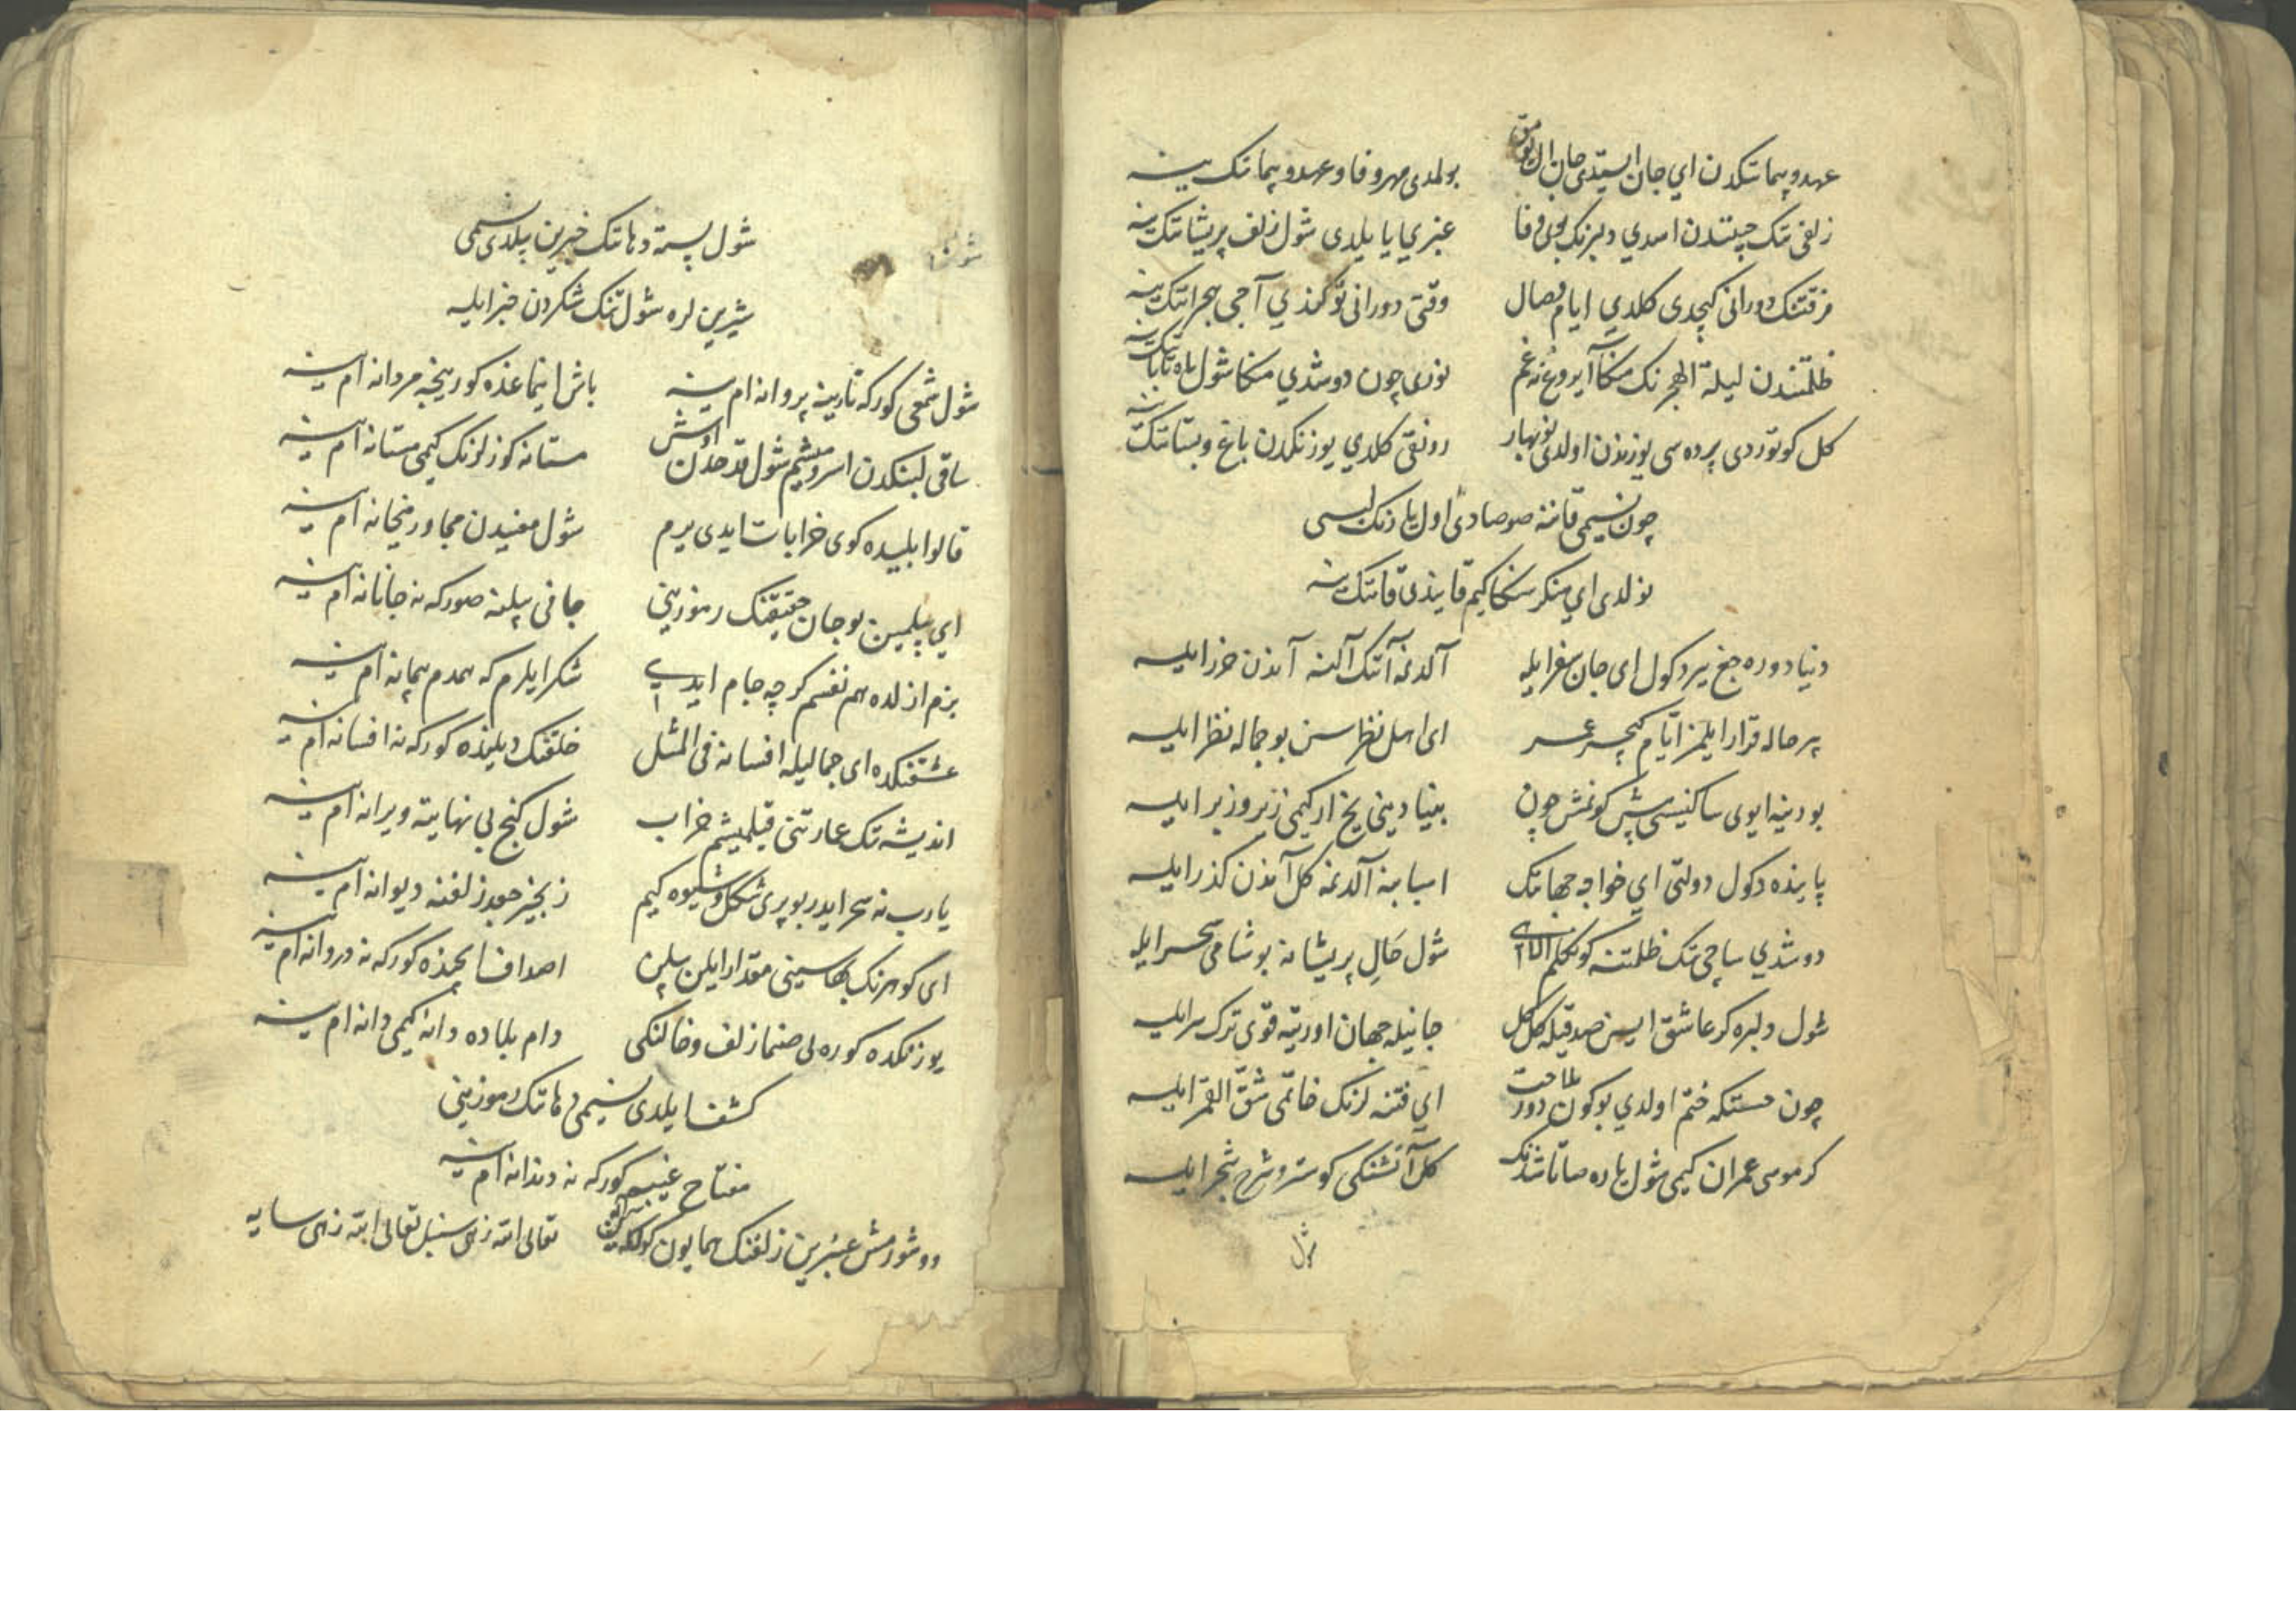 عهد و پیمانکدن ای جان ایستدی جان الوثق بولمدی مهر و فا و عهد و پیمانک ینه
زلفی تک چیتندن اسدی دلبرنک بوی وفا عنبری یا یلدی شول زلف پریشانک ینه
فرقتنک دورانی کیچدی کلدی ایام وصال وقتی دورانی توکندی آجی هجرانک ینه
ظلمتندن لیلة الهجرنک منکا آیروغ نه غم نوری چون دوشدی منکا شول ماه تابانک ینه
کل کوتوردی پرده سی یوزندن اولدی نوبهار رونقی کلدی یوزنکدن باغ و بستانک ینه
چون نسیمی قاننه صوصادی اول یارنک لبی
نولدی ای منکر سنکا کیم قایندی قانک ینه
دنیا دوره جغ ییر دکول ای جان سفر ایله آلدنمه آنک آلنه آندن حذر ایله
بر حاله قرار ایلمز ایام کیچر عمر ای اهل نظر سن بو جماله نظر ایله
بو دنیه ایوی ساکنیسی پیش کونمش چون بنیادینی یخ ار کیمی زیر و زبر ایله
پاینده دکول دولتی ای خواجه جهانک اسبابنه آلدنمه کل آندن کذر ایله
دوشدی ساچی تک ظلمتنه کونکلم شول حال پریشانه بو شامی سحر ایله
شول دلبره کر عاشق ایسن صدقیله کل کل جانیله جهان اورتیه قوی ترک سر ایله
چون حسنکه ختم اولدی بو کون دور ملاحت ای فتنه لرنک خاتمی شق القمر ایله
کر موسی عمران کیمی شول یاره صاتاشدنک کل آتشنکی کوستر و شرح شجر ایله
شول
شول پسته دهانک خبرین بیلدی نسیمی
شیرین لره شول تنک شکردن خبر ایله
شول شمعی کور که نارینه پروانه ام ینه باش اینما عذه کور نیجه مردانه ام ینه
ساقی لبنکدن اسرومیشم شول قدحدن اوش مستانه کوزلرنک کیمی مستانه ام ینه
قالوا بلیده کوی خرابات ایدی یرم شول معنیدن مجاور میخانه ام ینه
ای بیلمین بو جان حقیقتنک رموزینی جانی بیلمنه صور که نه جانانه ام ینه
بزم ازلده هم نفسم کر چه جام ایدی شکر ایلرم که همدم پیمانه ام ینه
عشقنکده ای جمالیله افسانه فی المثل خلقنک دیلینده کور که نه افسانه ام ینه
اندیشه تک عمارتنی قیلمیشم خراب شول کنج بی نهایته ویرانه ام ینه
یارب نه سحر ایدر بو پری شکل و شیوه کیم زنجیر جعد زلفنه دیوانه ام ینه
ای کوهرنک بهاسینی مقدار ایلن بیلن اصداف ایچنده کور که نه دردانه ام ینه
یوزنکده کوره لی صنما زلف و خالنکی دام بلاده دانه کیمی دانه ام ینه
کشف ایلدی نسیمی دهانک رموزینی
مفتاح غیبم کور که نه دندانه ام ینه
دوشورمش عنبرین زلفنک همایون تعالی الله زهی سنبل تعالی الله زهی سایه